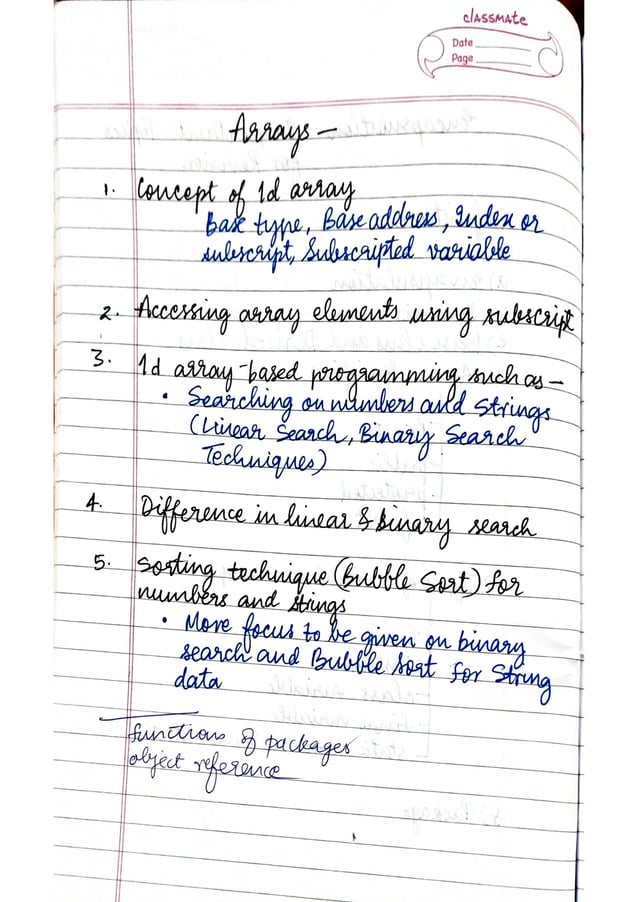 classmate
Date
Page
Arrays -
1. Concept of 1d array
Base type, Base address, Index or
subscript, Subscripted variable
2. Accessing array elements using subscript
3. 1d array-based programming such as -
• Searching on numbers and strings
(Linear Search, Binary Search
Techniques)
4. Difference in linear & binary search
5. Sorting technique (Bubble Sort) for
numbers and strings
• More focus to be given on binary
search and Bubble Sort for String
data
functions of packages
object reference